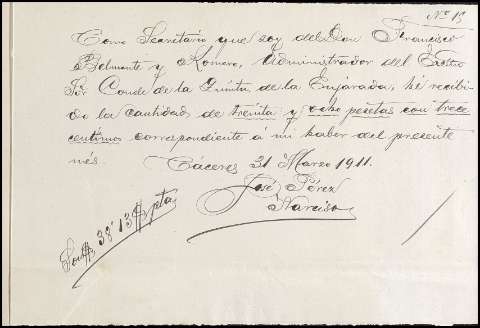 Nº 13
Como Secretario que soy del Don Francisco
Belmonte y Romero, Administrador del Excmo
Sör Conde de la Quinta de la Enjarada, hé recibi-
do la cantidad de treinta y ocho pesetas con trece
centimos correspondiente á mi haber del presente
més.
Cáceres 31 Marzo 1911.
José Pérez
Narciso
Son 38'13 pta